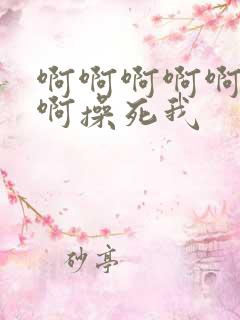 啊啊啊啊啊
啊操死我
砂亭